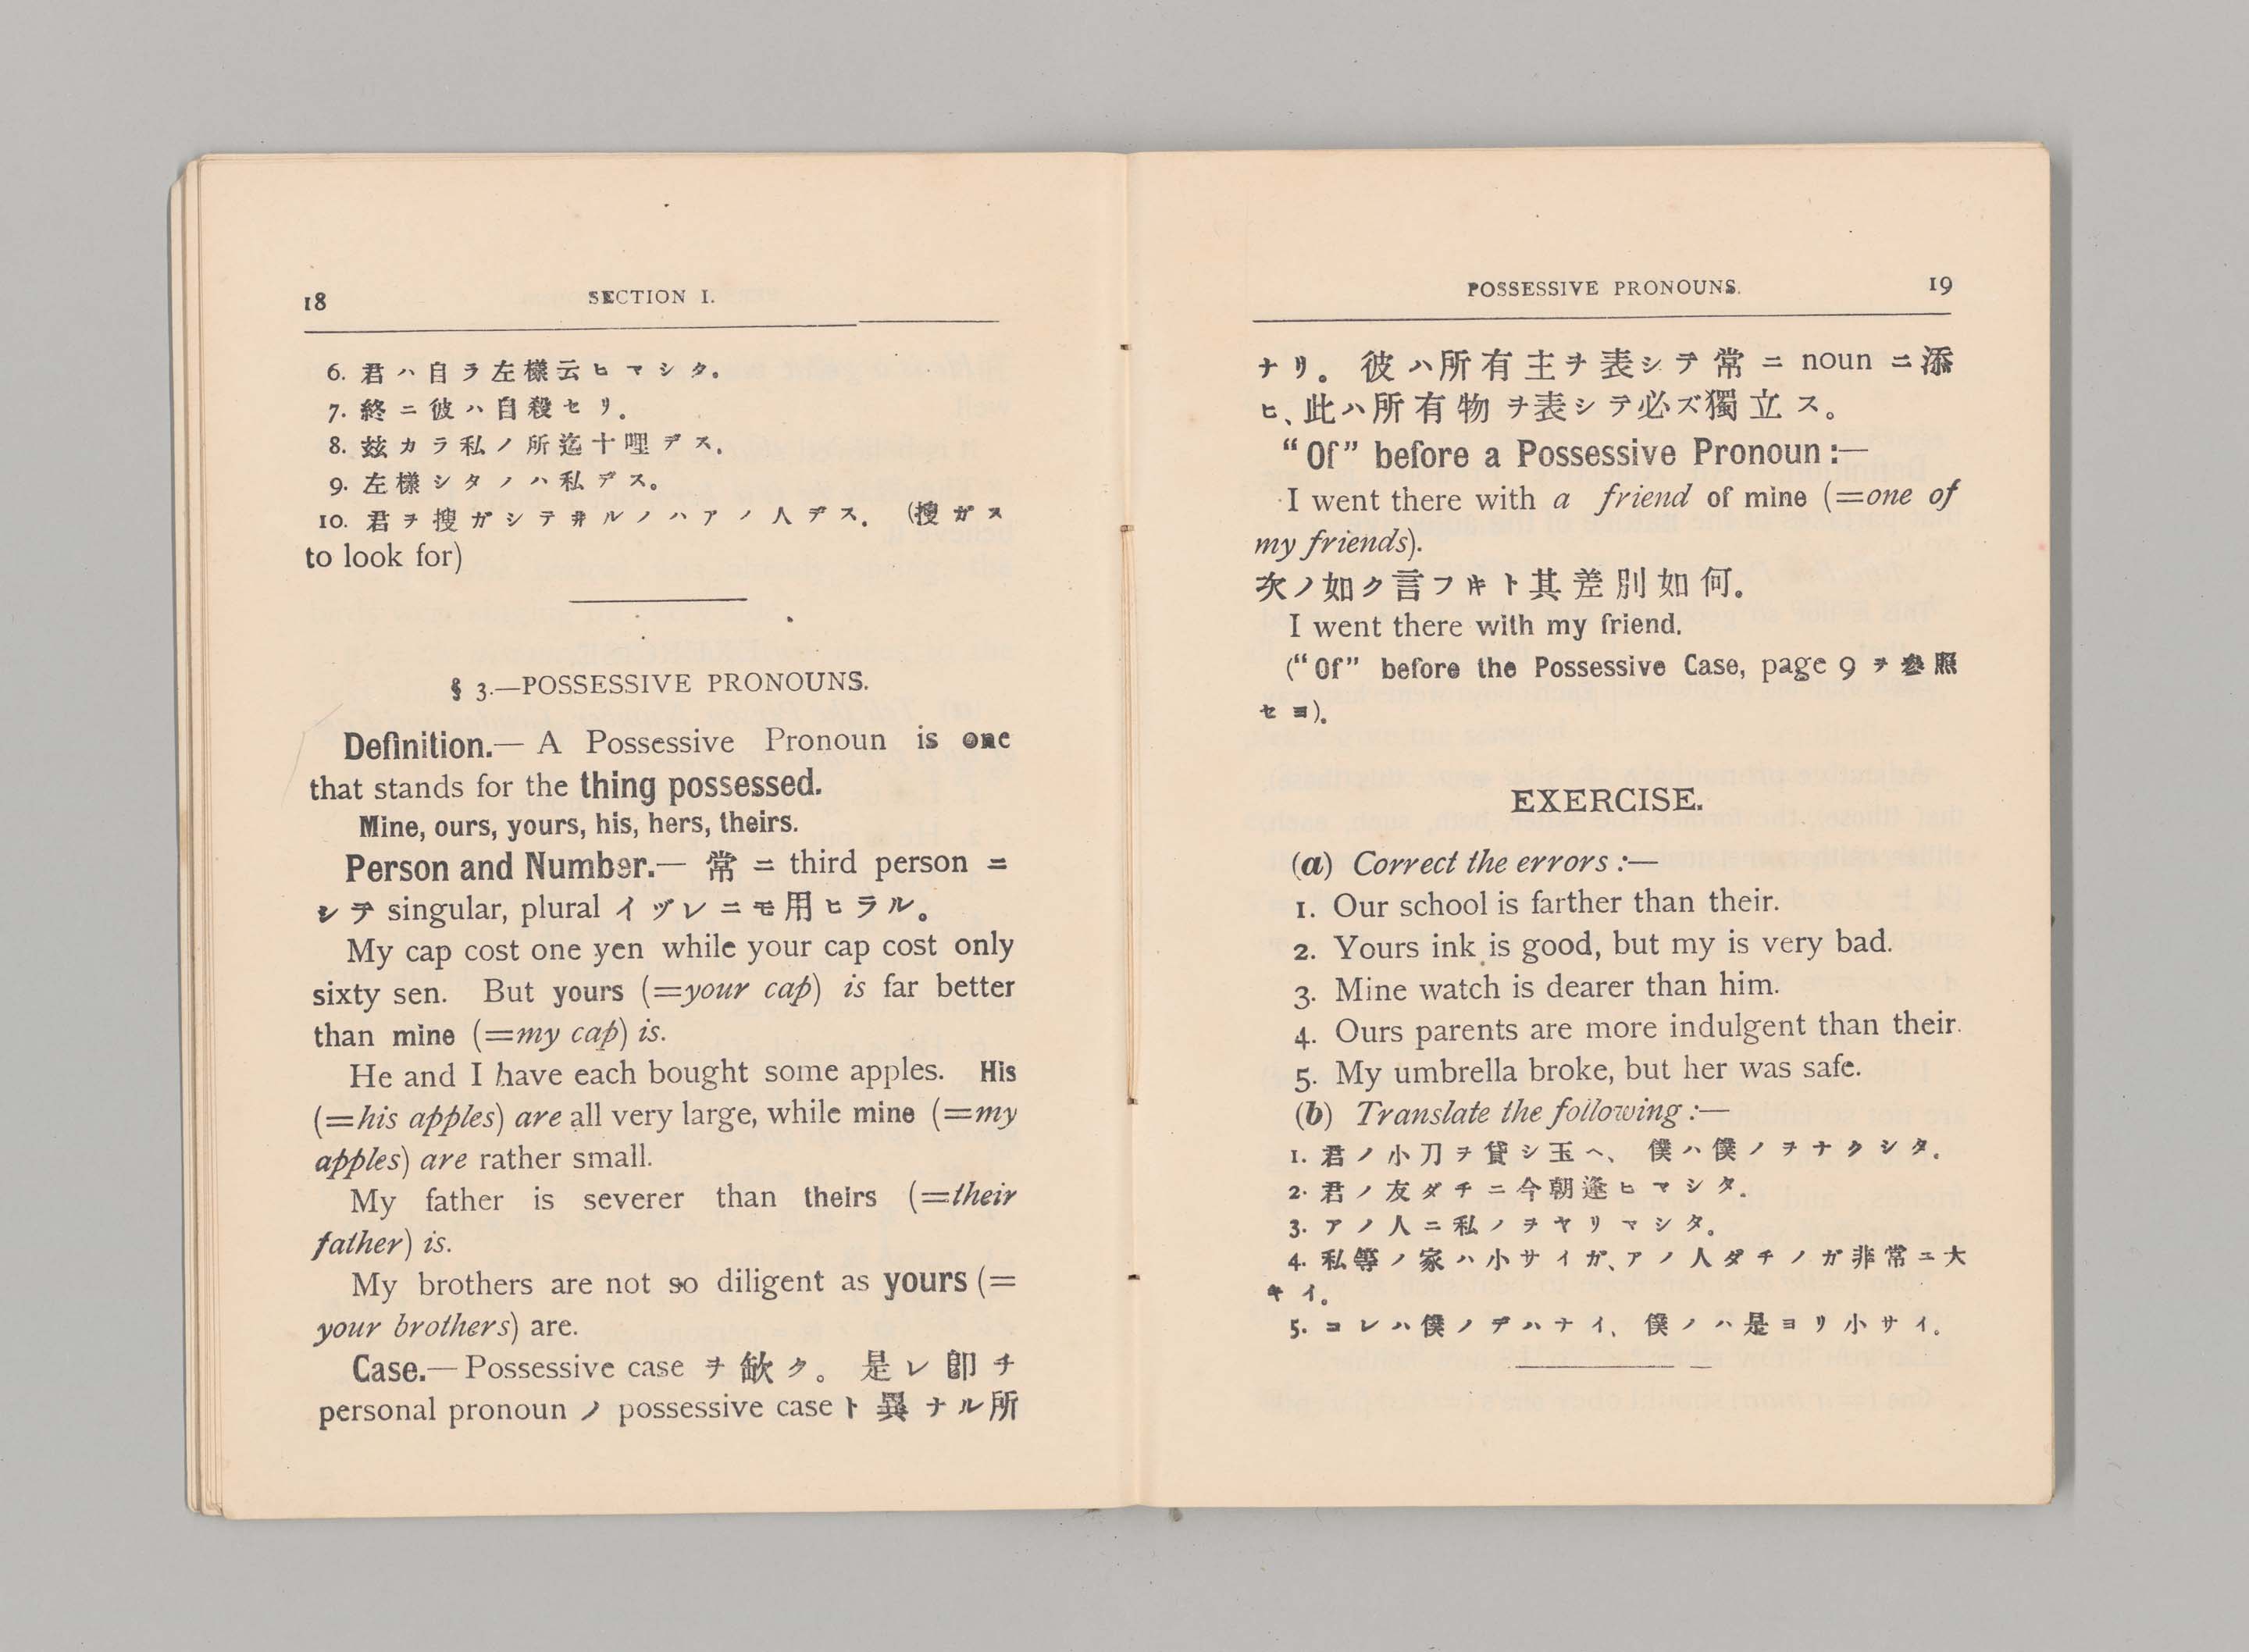 18 SECTION I.
6. 君ハ自ラ左樣云ヒマシタ。
7. 終ニ彼ハ自殺セリ。
8. 玆カラ私ノ所迄十哩デス。
9. 左樣シタノハ私デス。
10. 君ヲ搜ガシテ井ルノハアノ人デス。 (搜ガス
to look for)
§ 3.—POSSESSIVE PRONOUNS.
Definition.— A Possessive Pronoun is one
that stands for the thing possessed.
Mine, ours, yours, his, hers, theirs.
Person and Number.— 常ニ third person ニ
シテ singular, plural イヅレニモ用ヒラル。
My cap cost one yen while your cap cost only
sixty sen. But yours (=your cap) is far better
than mine (=my cap) is.
He and I have each bought some apples. His
(=his apples) are all very large, while mine (=my
apples) are rather small.
My father is severer than theirs (=their
father) is.
My brothers are not so diligent as yours (=
your brothers) are.
Case.—Possessive case ヲ缺ク。 是レ卽チ
personal pronoun ノ possessive case ト異ナル所
POSSESSIVE PRONOUNS. 19
ナリ。 彼ハ所有主ヲ表シテ常ニ noun ニ添
ヒ、此ハ所有物ヲ表シテ必ズ獨立ス。
“Of” before a Possessive Pronoun :—
I went there with a friend of mine (=one of
my friends).
次ノ如ク言フキト其差別如何。
I went there with my friend.
(“Of” before the Possessive Case, page 9 ヲ參照
セヨ).
EXERCISE.
(a) Correct the errors :—
1. Our school is farther than their.
2. Yours ink is good, but my is very bad.
3. Mine watch is dearer than him.
4. Ours parents are more indulgent than their.
5. My umbrella broke, but her was safe.
(b) Translate the following :—
1. 君ノ小刀ヲ貸シ玉ヘ、 僕ハ僕ノヲナクシタ。
2. 君ノ友ダチニ今朝逢ヒマシタ。
3. アノ人ニ私ノヲヤリマシタ。
4. 私等ノ家ハ小サイガ、アノ人ダチノガ非常ニ大
キイ。
5. コレハ僕ノデハナイ、 僕ノハ是ヨリ小サイ。